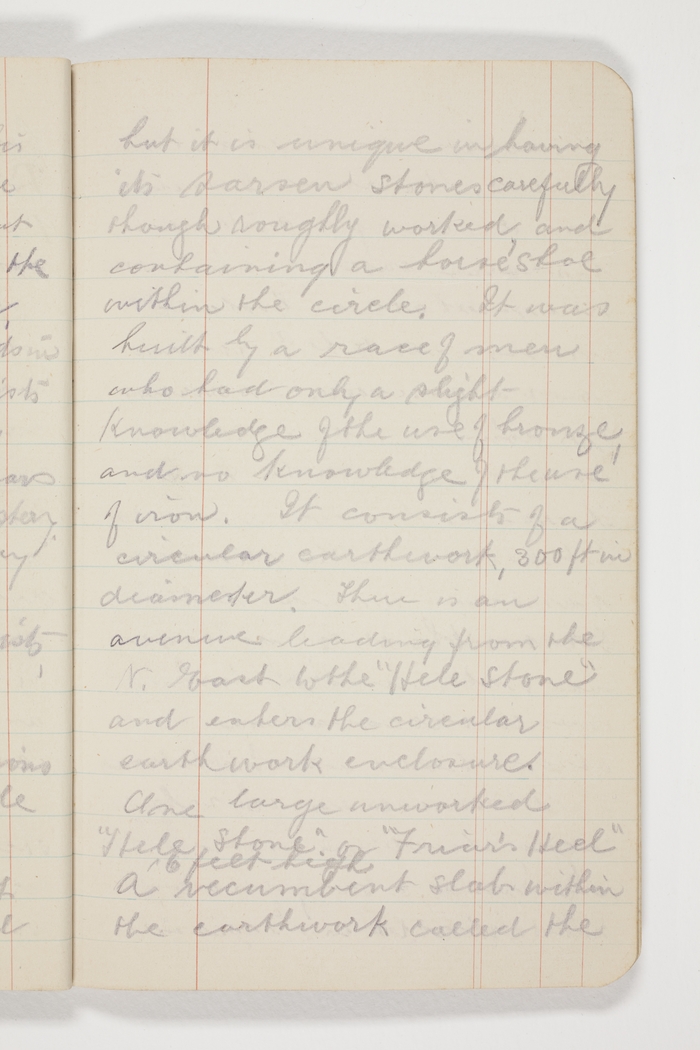 but it is unique in having
its sarsen stones carefully
though roughly worked, and
containing a horse'shoe
within the circle. It was
built by a race of men
who had only a slight
knowledge of the use of bronze,
and no knowledge of the use
of iron. It consists of a
circular earthwork, 300 ft in
diameter. There is an
avenue leading from the
N. East to the "Hele Stone"
and enters the circular
earthwork enclosure.
One large unworked
"Hele Stone" or "Friar's Heel"
6 feet high
A recumbent slab within
the earthwork called the